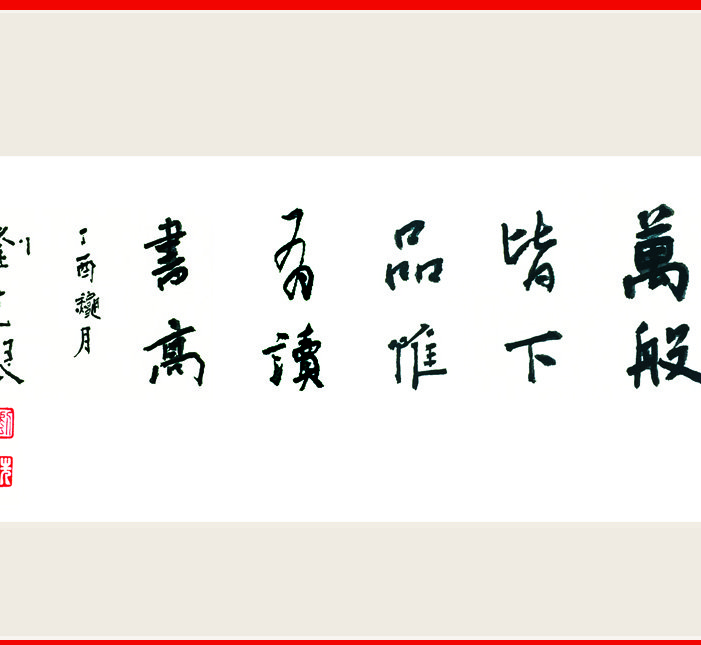 萬般
皆下
品惟
有讀
書高
丁酉龝月